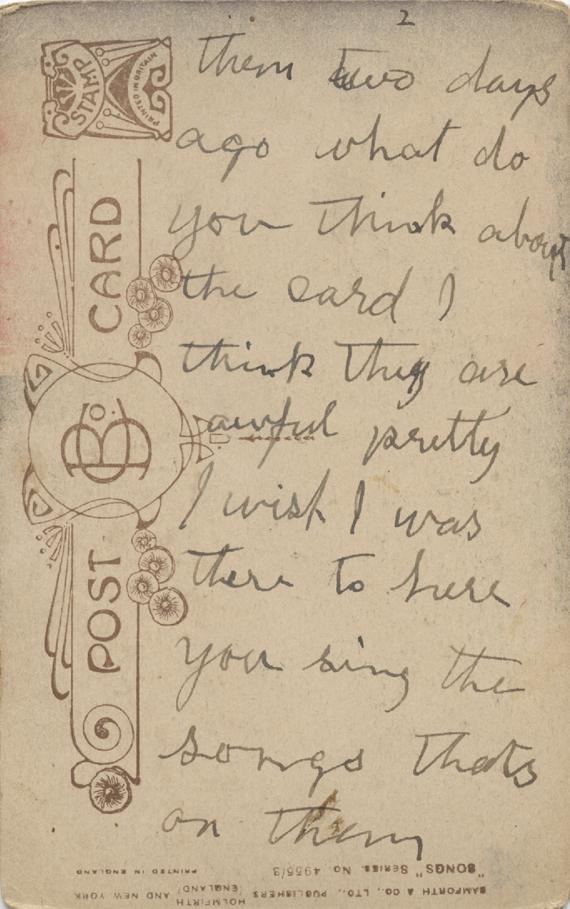 2
them two days
ago what do
you think about
the card I
think they are
awful pretty
I wish I was
there to here
you sing the
songs thats
on them
STAMP
PRINTED IN BRITAIN
POST CARD
B Co.
BAMFORTH & CO., LTD., PUBLISHERS (HOLMFIRTH (ENGLAND) AND NEW YORK
"SONGS" SERIES. No. 4955/3
PRINTED IN ENGLAND